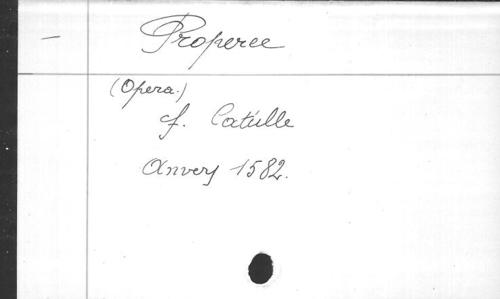 —
Properce
(Opera.)
cf. Catulle
Anvers 1582.